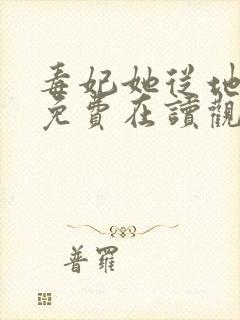 毒妃她從地
免費在讀觀
普羅